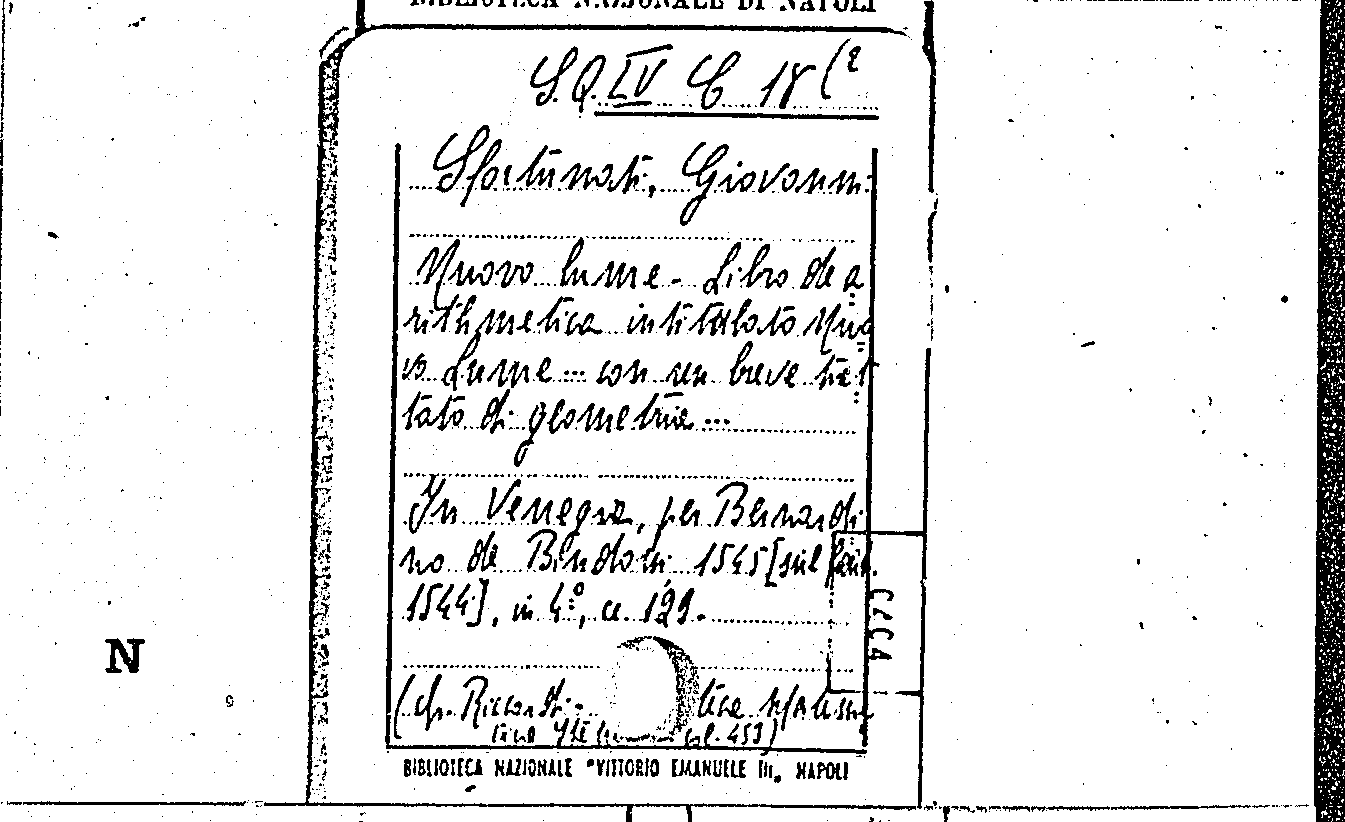 BIBLIOTECA NAZIONALE DI NAPOLI
S.Q. IV C 18 (2
Sfortunati, Giovanni
Nuovo lume - Libro de a
rithmetica intitulato Nuo
vo Lume... con un breve trat
tato di geometria...
In Venegia, per Bernardi
no de Bendoni 1545 [sul fron.
1544], in 4º, cc. 129.
(cfr. Riccardi-
col. 453)
BIBLIOTECA NAZIONALE "VITTORIO EMANUELE III„ NAPOLI
N